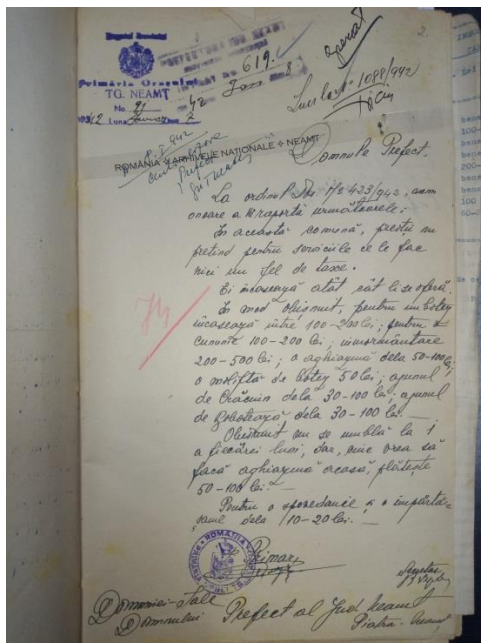 Regatul României
Primăria Orașului
TG. NEAMȚ
No. 91
1942 Luna Januar 7
PREFECTURA JUD. NEAMȚ
619
42
Jan 8
2.
1088/942
ROMÂNIA ARHIVELE NAȚIONALE NEAMȚ
Domnule Prefect,
La ordinul Dvs. 423/942, am
onoare a vă raporta următoarele:
În această comună, preoții nu
pretind pentru serviciile ce le fac
nici un fel de taxe.
Ei încasează atât cât li se oferă
În mod obișnuit, pentru un botez
încasează între 100-200 lei; pentru
cununie 100-200 lei; înmormântare
200-500 lei; o aghiazmă dela 50-100 lei
o molifta de botez 50 lei; ajunul
de Crăciun dela 30-100 lei; ajunul
de Bobotează dela 30-100 lei.—
Obișnuit nu se umblă la 1
a fiecărei luni, dar, cine vrea să
facă aghiazmă acasă, plătește
50-100 lei.—
Pentru o spovedanie și o împărtă-
șanie dela 10-20 lei.—
Primar,
Secretar
Domniei-Sale
Domnului Prefect al Jud. Neamț
Piatra-Neamț